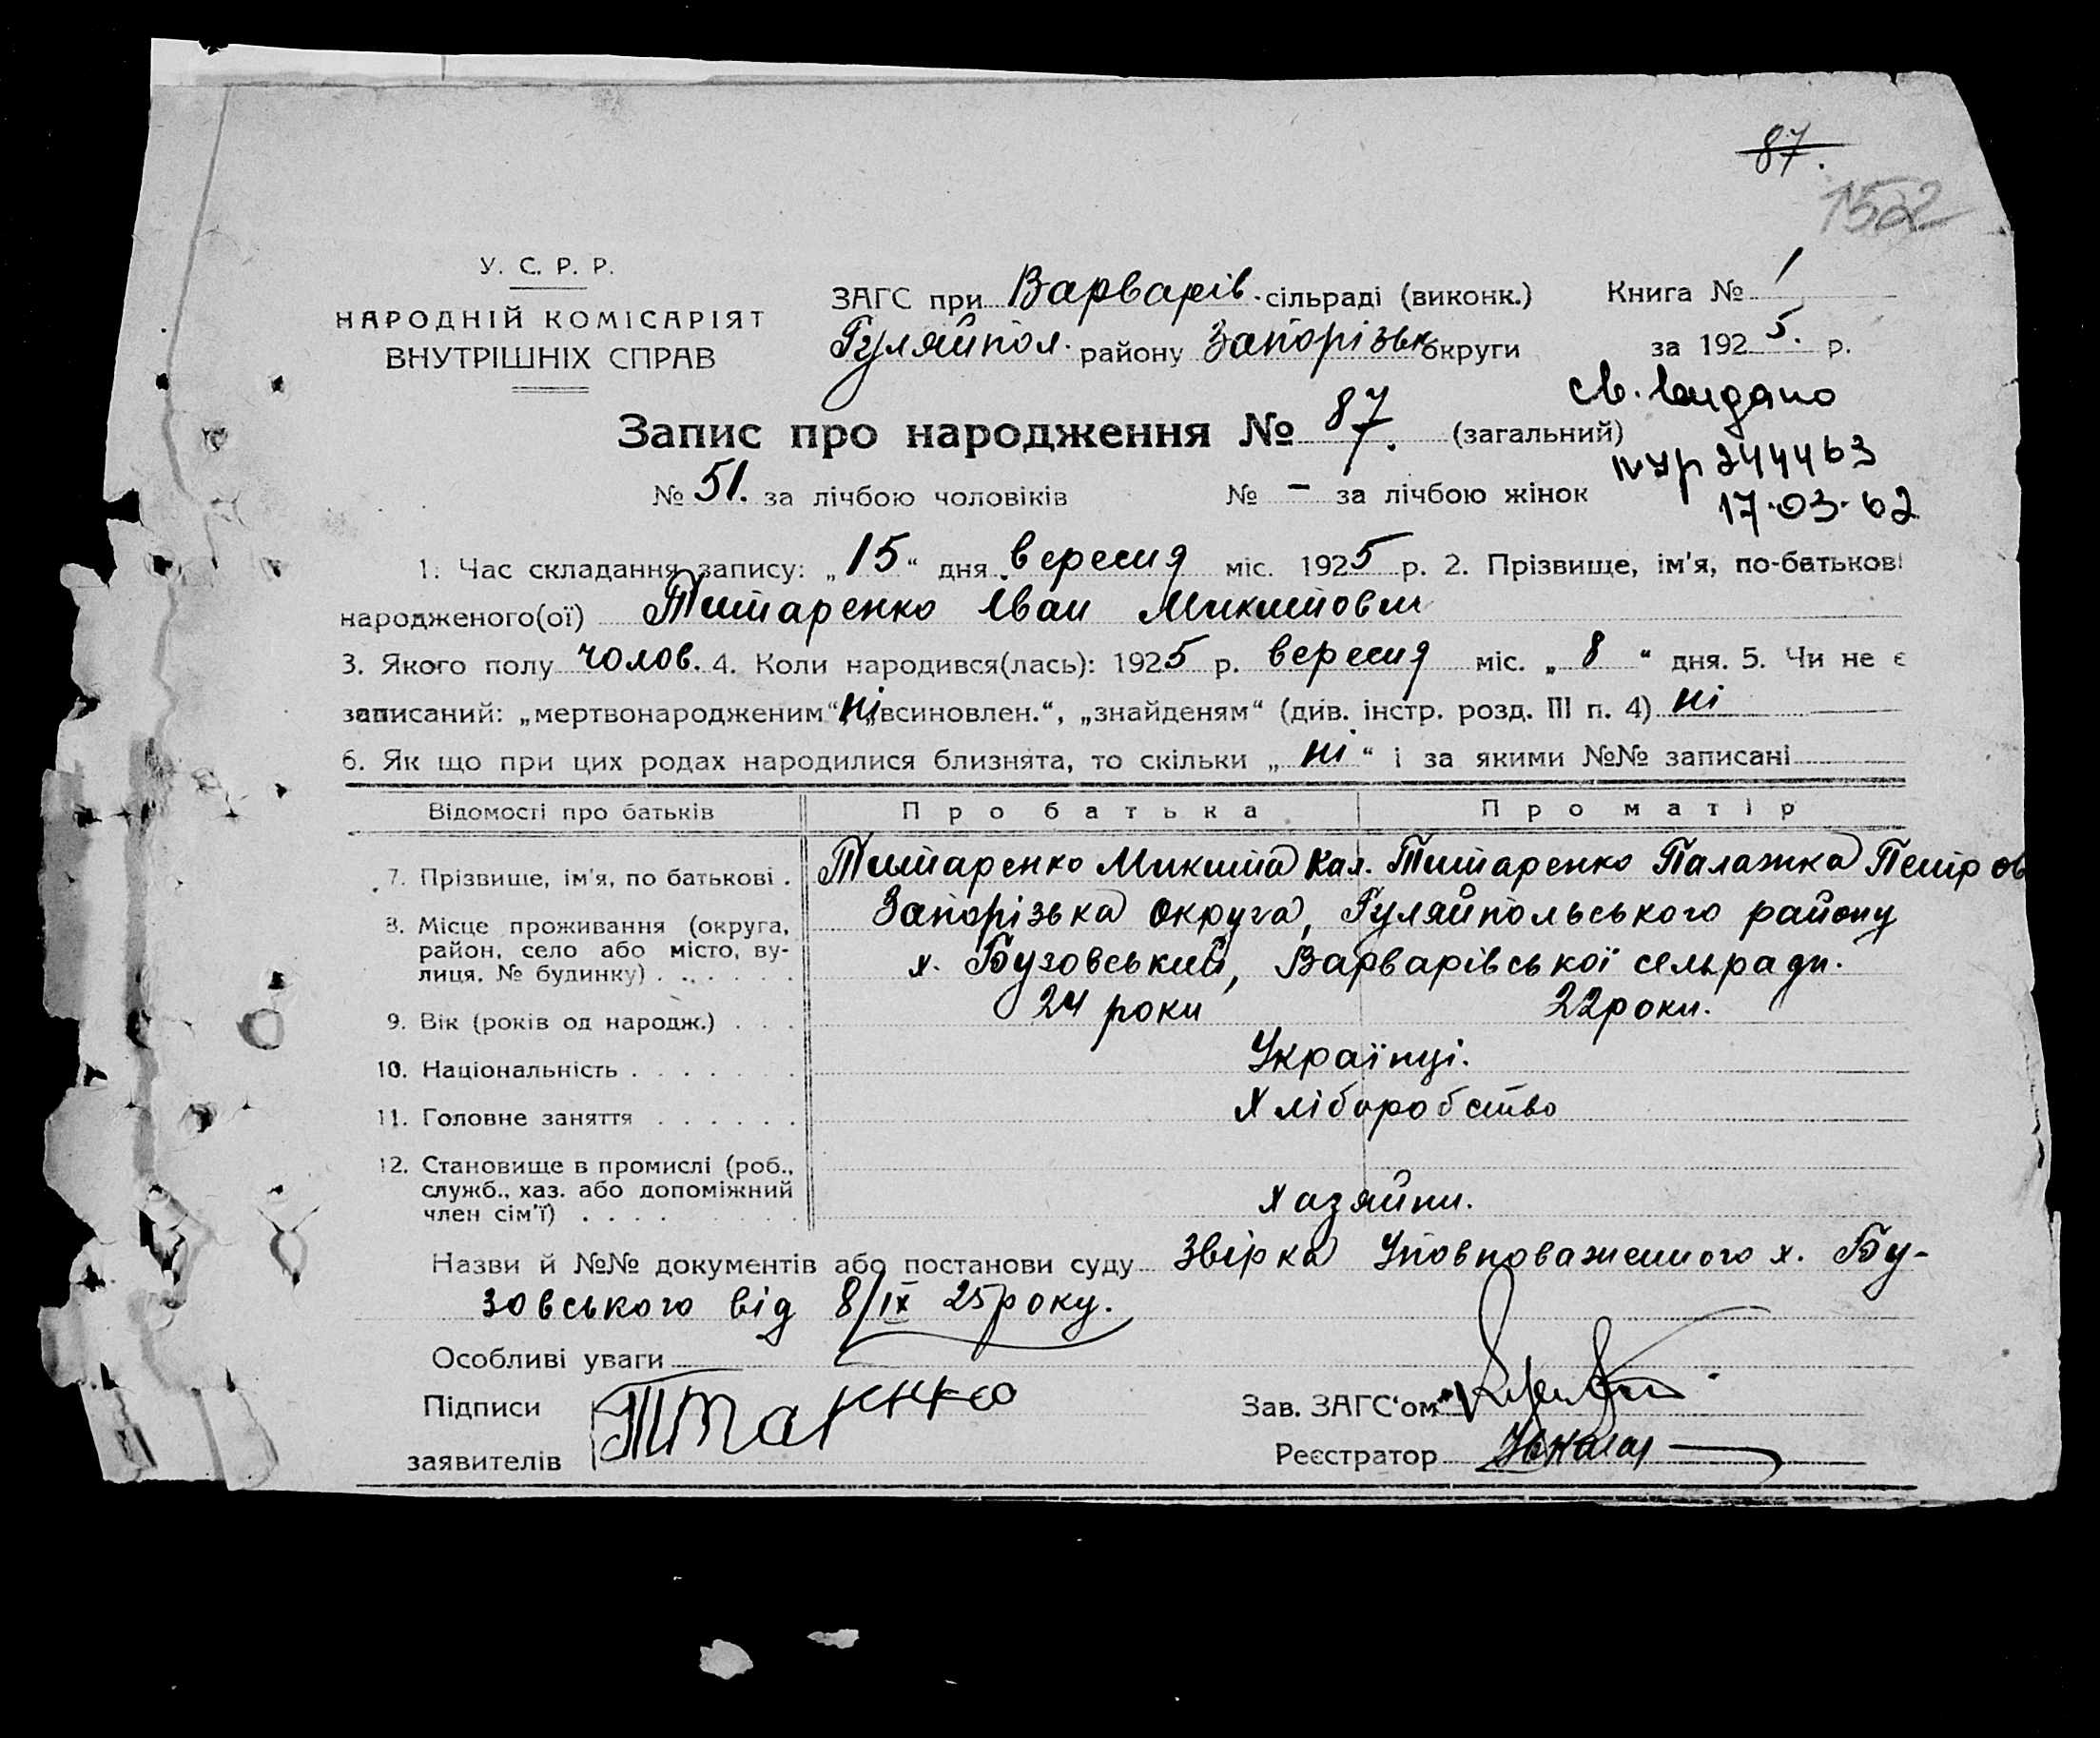 87.
1522
У. С. Р. Р.
НАРОДНІЙ КОМІСАРІЯТ
ВНУТРІШНІХ СПРАВ
ЗАГС при Варварів. сільраді (виконк.) Книга № 1
Гуляйпол. району Запорізьк округи за 1925. р.
св. видано
Запис про народження № 87. (загальний)
244463
№ 51. за лічбою чоловіків № – за лічбою жінок
17-03-62
1. Час складання запису: „15“ дня вересня міс. 1925 р. 2. Прізвище, ім'я, по-батькові
народженого(ої) Титаренко Іван Микитович
3. Якого полу чолов. 4. Коли народився(лась): 1925 р. вересня міс. „8“ дня. 5. Чи не є
записаний: „мертвонародженим“ ні „всиновлен.“, „знайденям“ (див. інстр. розд. III п. 4) ні
6. Як що при цих родах народилися близнята, то скільки „ні“ і за якими №№ записані
Відомості про батьків Про батька Про матір
7. Прізвище, ім'я, по батькові . Титаренко Микита Кал. Титаренко Палажка Петров
8. Місце проживання (округа, Запорізька округа, Гуляйпольського району
район, село або місто, ву-
лиця, № будинку) . . . . . . х. Бузовський, Варварівської сельради.
9. Вік (років од народж.) . . . 24 роки 22 роки.
10. Національність . . . . . . . Українці.
11. Головне заняття . . . . . . Хліборобство
12. Становище в промислі (роб.,
служб., хаз. або допоміжний
член сім'ї) . . . . Хазяйни.
Назви й №№ документів або постанови суду Звірка Уповноваженного х. Бу-
зовського від 8/IX 25 року.
Особливі уваги
Підписи
Зав. ЗАГС'ом
заявителів
Реєстратор